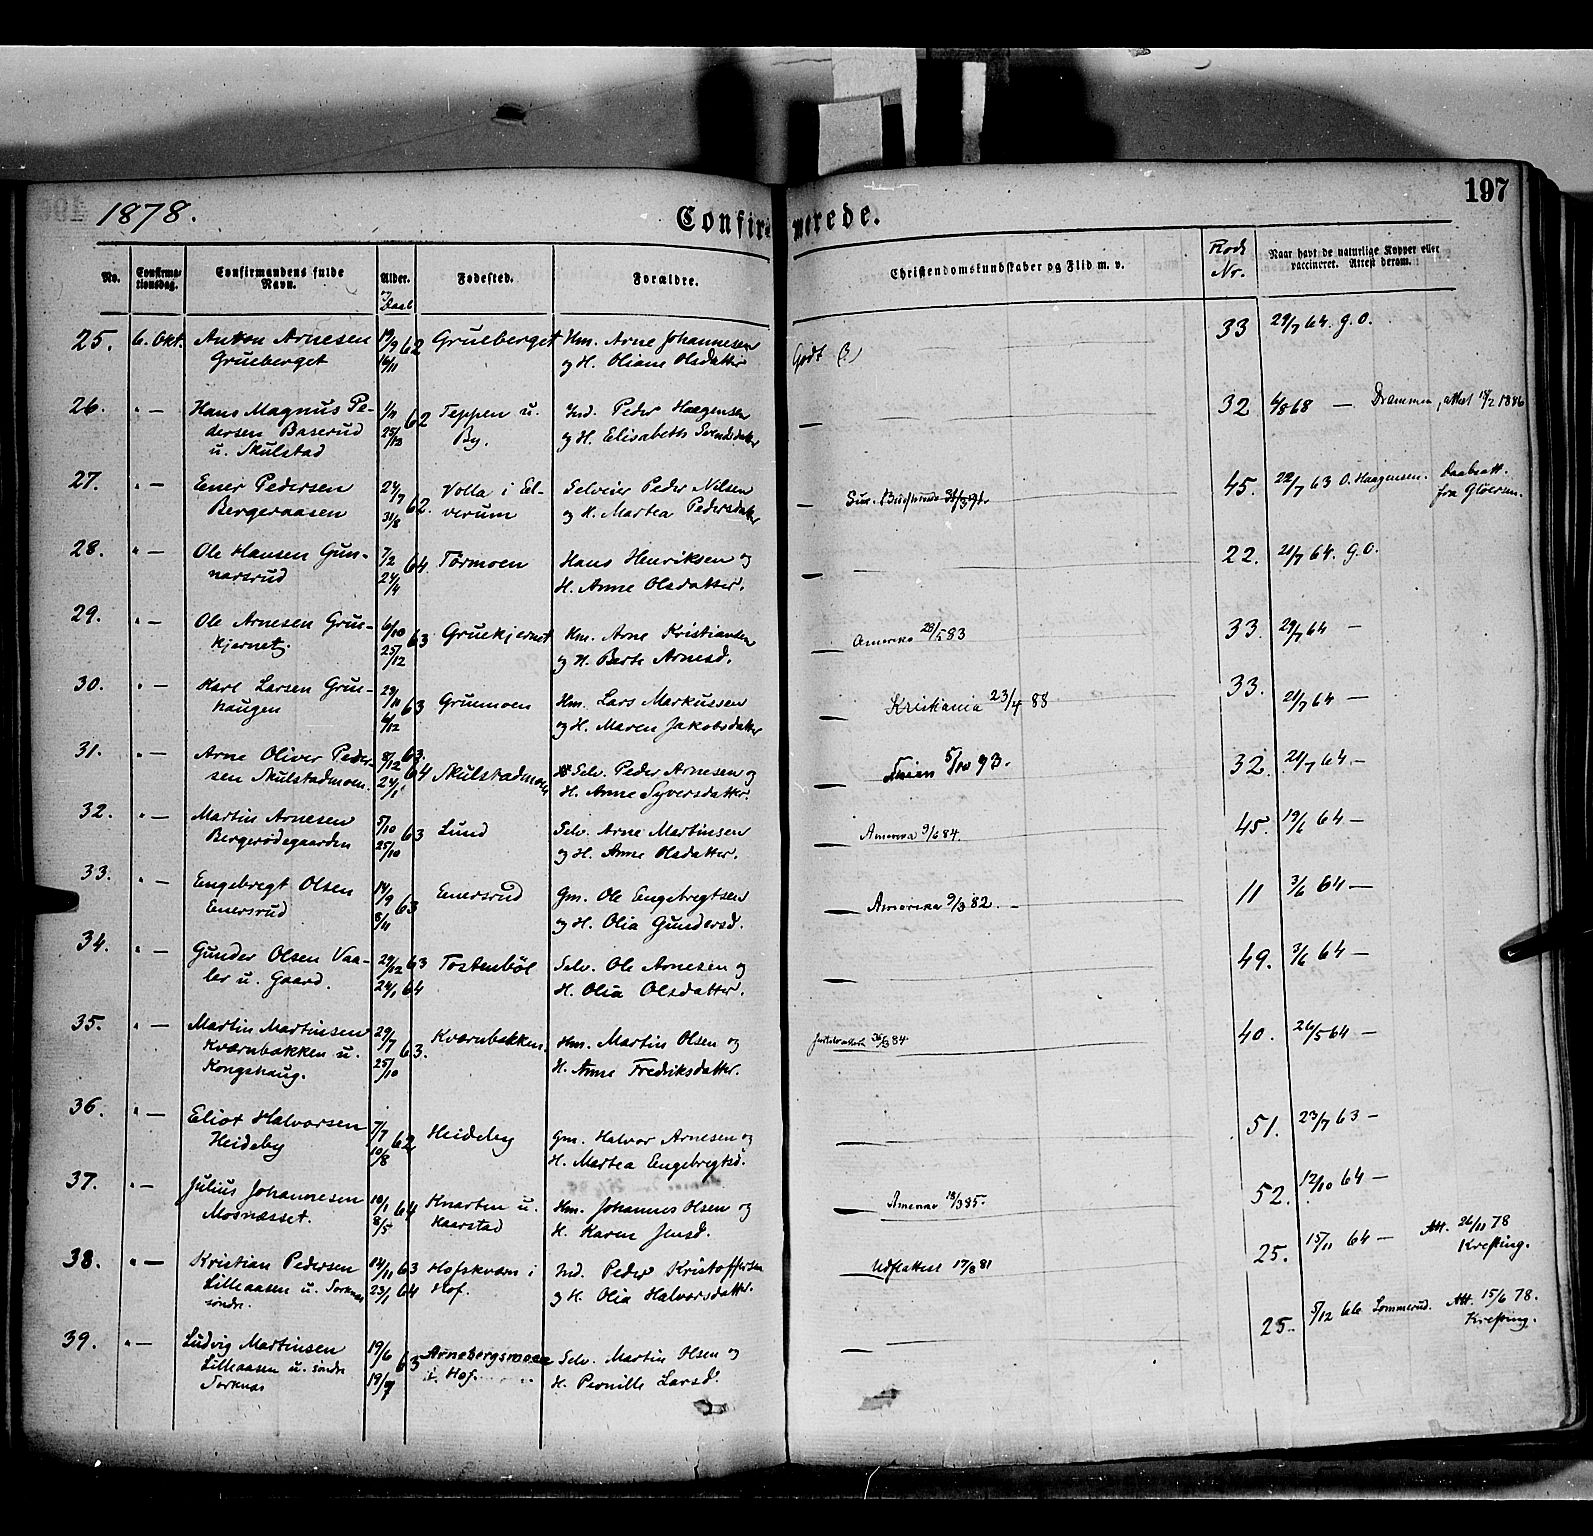 1878.
Confirmerede.
197
No.
Confirma-
tionsdag.
Confirmandens fulde
Navn.
Alder.
og
Daab
Fødested.
Forældre.
Christendomskundskaber og Flid m. v.
Rode
Nr.
Naar havt de naturlige Kopper eller
vaccineret. Attest derom.
25. 6. Okt. Anton Arnesen 19/9 62 Grueberget Hm. Arne Johannesen Godt 33 29/7 64. G.O.
Grueberget 16/11 og H. Oliane Olsdatter
26. " — Hans Magnus Pe- 62 Teppen u. Ind. Peder Haagensen — 32 6/8 68 — Drammen, attest 1886
dersen Baserud By. og H. Elisabeth Svendsdatter
u. Skulstad
27. " — Ener Pedersen 24/7 62. Volla i El- Selveier Peder Nilsen — 45. 22/7 63 O. Haagensen. Daabsatt.
Bergeraasen 31/8 verum og H. Martea Pedersdatter fra
28. " — Ole Hansen Gun- 7/2 64. Tørmoen Hans Henriksen og — 22. 21/7 64. G.O.
narsrud 24/4 H. Anne Olsdatter.
29. " — Ole Arnesen Grue- 6/10 63 Gruekjernet Hm. Arne Kristiansen — Amerika 23/5 83 33. 29/7 64 —
kjernet. 25/12 og H. Berte Arnesd.
30. " — Karl Larsen Grue- 29/10 63 Gruemoen Hm. Lars Markussen — Kristiania 23/4 88 33. 21/7 64 —
haugen 6/12 og H. Maren Jakobsdatter
31. " — Arne Oliver Peder- 8/12 63. Skulstadmoen Selv. Peder Arnesen og — 5/10 93. 32. 21/7 64 —
sen Skulstadmoen. 24/1 64 H. Anne Syversdatter.
32. " — Martin Arnesen 5/10 63 Lund Selv. Arne Martinsen — Amerika 9/6 84. 45. 19/6 64 —
Bergerødegaarden 25/10 og H. Anne Olsdatter.
33. " — Engebregt Olsen 14/9 63 Enersrud Gm. Ole Engebregtsen — Amerika 9/3 82. 11 3/6 64 —
Enersrud 8/11 og H. Olia Gundersd.
34. " — Gunder Olsen Vaa- 29/12 63 Tostenbøl Selv. Ole Arnesen og — 49. 3/6 64 —
ler u. Gaard. 24/1 64 H. Olia Olsdatter.
35. " — Martin Martinsen 29/7 63. Kværnbakken. Hm. Martin Olsen og 26/3 84 40. 26/5 64 —
Kværnbakken u. 25/10 H. Anne Fredriksdatter.
Kongshaug.
36. " — Eliot Halvorsen 7/7 62 Heideby Gm. Halvor Arnesen og — 51. 23/7 63 —
Heideby 10/8 H. Martea Engebregtsd.
37. " — Julius Johannesen 10/1 64 Knarten u. Hm. Johannes Olsen og — Amerika 18/3 85. 52. 12/10 64 —
Mosnæsset. 8/5 Kaarstad H. Karen Jensd.
38. " — Kristian Pedersen 14/11 63 Hofskværn i Ind. Peder Kristoffersen — Udflattest 17/8 81 25. 15/11 64 — Att. 26/11 78
Lilleaasen u. Torknæs 23/1 64 Hof. og H. Olia Halvorsdatter. Krefting.
søndre.
39. " — Ludvig Martinsen 19/6 63 Arnebergsmoen Selv. Martin Olsen og — 25. 5/12 66 Lommerud. Att. 15/6 78.
Lilleaasen u. søndre 19/7 i Hof. H. Pernille Larsd. Krefting.
Torknæs